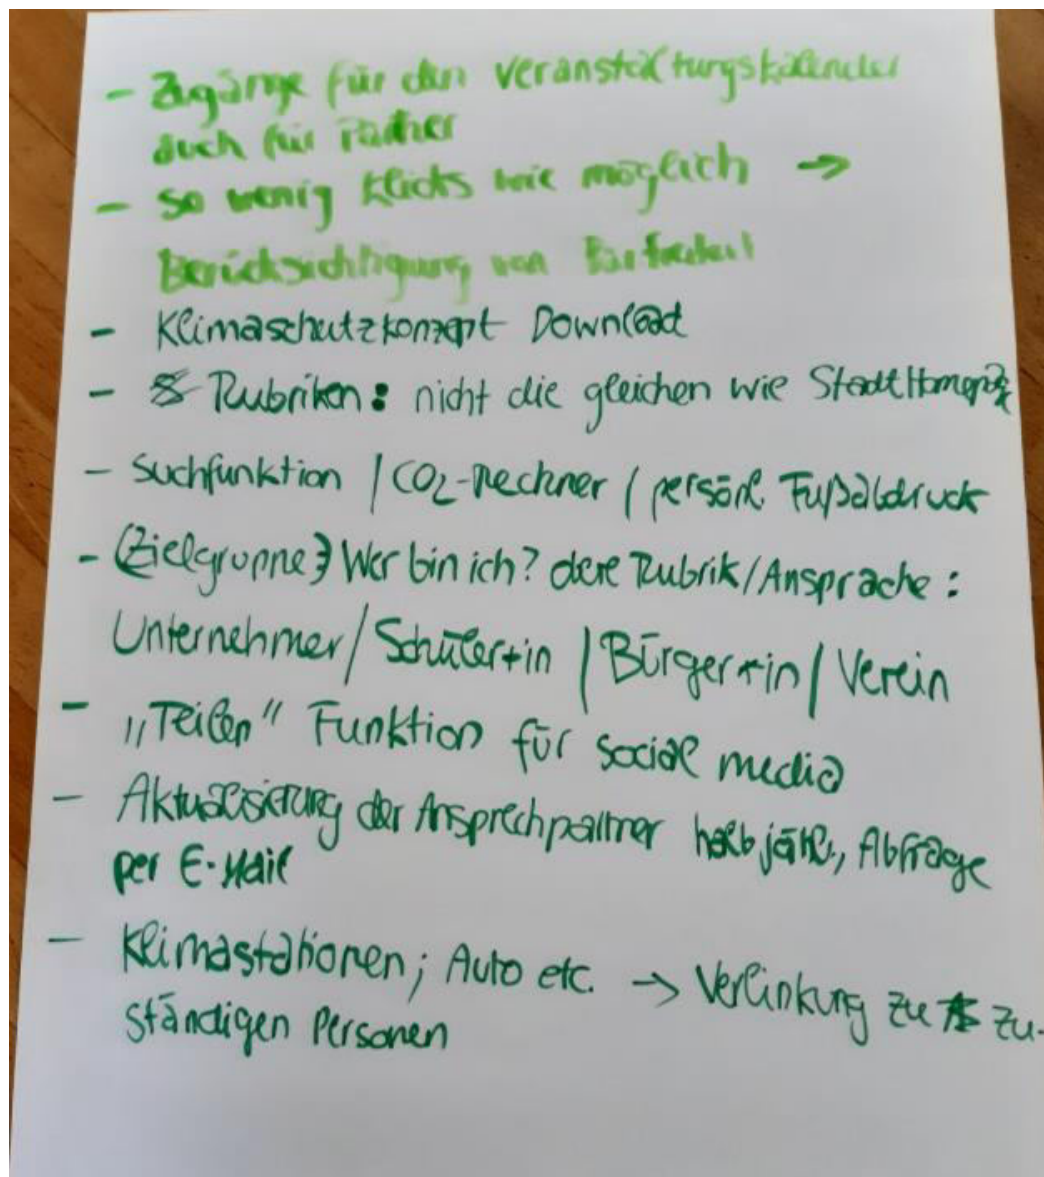 - Zugänge für den Veranstaltungskalender
auch für Partner
- So wenig Klicks wie möglich →
Berücksichtigung von
- Klimaschutzkonzept Download
- Rubriken: nicht die gleichen wie Stadt Homepage
- Suchfunktion / CO2-Rechner / persönl. Fußabdruck
- (Zielgruppe) Wer bin ich? dene Rubrik/Ansprache:
Unternehmer/Schüler+in / Bürger+in / Verein
- „Teilen" Funktion für social media
- Aktualisierung der Ansprechpartner halbjährl., Abfrage
per E-Mail
- Klimastationen; Auto etc. → Verlinkung zu zu-
ständigen Personen